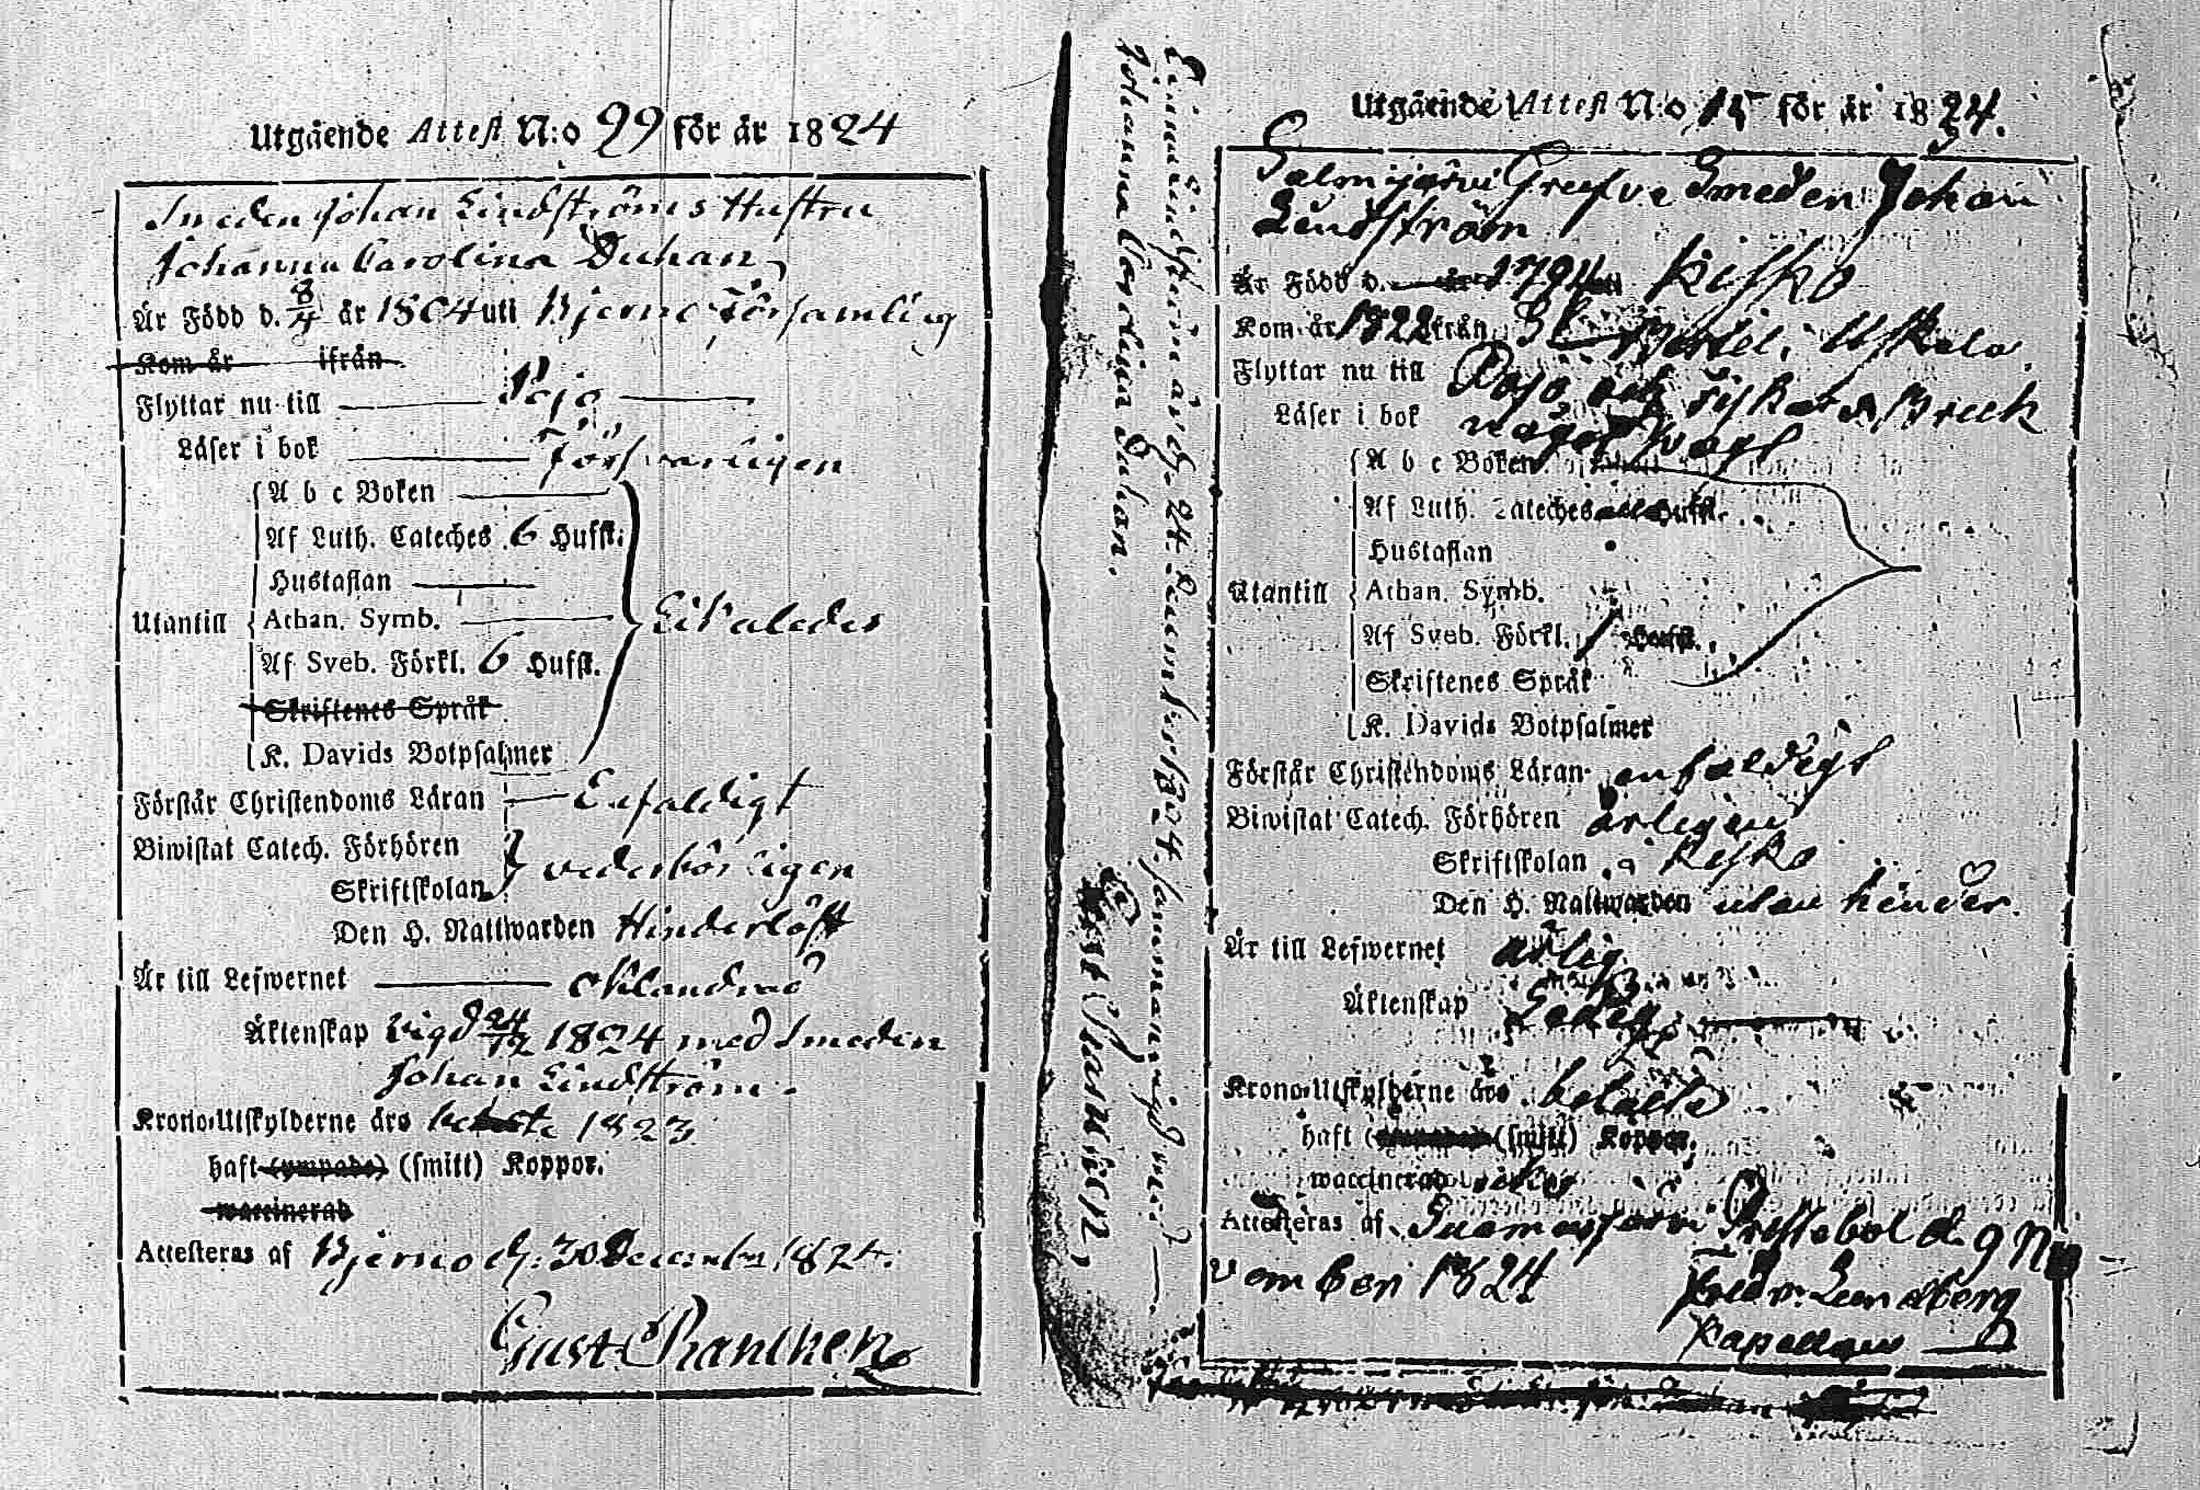 Utgående Attest N:o 99 för år 1824
Smeden Johan Lindströms Hustru
Johanna Carolina Duhan,
Är Född d. 8/4 år 1804 uti Bjerno Församling
Kom år ifrån
Flyttar nu till Pojo
Läser i bok Försvarligen
A b c Boken
Af Luth. Cateches 6 Hufst.
Hustaflan
Utantill Athan. Symb.
Af Sveb. Förkl. 6 Hufst.
Skriftenes Språk
K. Davids Botpsalmer
Likaledes
Förstår Christendoms Läran Enfaldigt
Biwistat Catech. Förhören
Skriftskolan vederbörligen
Den H. Nattwarden Hinderlöst
Är till Lefwernet oklandrad
Äktenskap Vigd 24/12 1824 med Smeden
Johan Lindström.
Krono-Utskylderne äro 1823
haft (ympade) (smitt) Koppor.
waccinerad
Attesteras af Bjerno d. 30 December 1824.
Gust
Johanna Carolina Duhan.
Utgående Attest N:o 15 för år 1824.
Smeden Johan
Lindström
Är Född d. år 1794 uti Kisko
Kom år 1822 ifrån Uskela
Flyttar nu till Pojo och Fiskars Bruk
Läser i bok något
A b c Boken
Af Luth. Cateches Hufst.
Hustaflan
Utantill Athan. Symb.
Af Sveb. Förkl. Hufst.
Skriftenes Språk
K. Davids Botpsalmer
Förstår Christendoms Läran enfaldigt
Biwistat Catech. Förhören årligen
Skriftskolan i Kisko
Den H. Nattwarden utan hinder.
Är till Lefwernet ärlig
Äktenskap Ledig
Krono-Utskylderne äro betalte
haft (smitt) Koppor.
waccinerad
Attesteras af Suomusjärvi Prestebol d. 9 No
vember 1824
Fredr. Lundberg
Kapellan